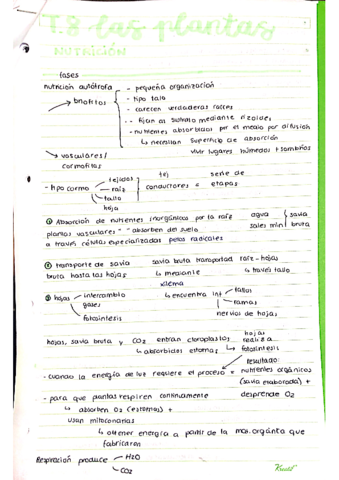 T.8 las plantas
NUTRICIÓN
fases
nutrición autótrofa - pequeña organización
briofitos - tipo talo
- carecen verdaderas raíces
- fijan al sustrato mediante rizoides
- nutrientes absorbidos por el medio por difusión
↳ necesitan superficie de absorción
vivir lugares húmedos + sombríos
vasculares/
cormofitas
- tipo cormo tejidos tej conductores = serie de etapas
raíz
tallo
hoja
① Absorción de nutrientes inorgánicos por la raíz agua savia
plantas vasculares " " absorben del suelo sales min bruta
a través células especializadas pelos radicales
② transporte de savia savia bruta transportad raíz-hojas
bruta hasta las hojas ↳ mediante ↳ través tallo
xilema
③ hojas intercambio ↳ encuentra int tallos
gases ramas
fotosíntesis nervios de hojas
hojas, savia bruta y CO2 entran cloroplastos hojas realiza
↳ absorbidos estomas fotosíntesis
resultado:
- cuando la energía de luz requiere el proceso = nutrientes orgánicos
(savia elaborada) +
- para que plantas respiren continuamente desprende O2
↳ absorben O2 (estomas) +
usan mitocondrias
↳ obtener energía a partir de la mat. orgánica que
fabricaron
Respiración produce H2O
CO2